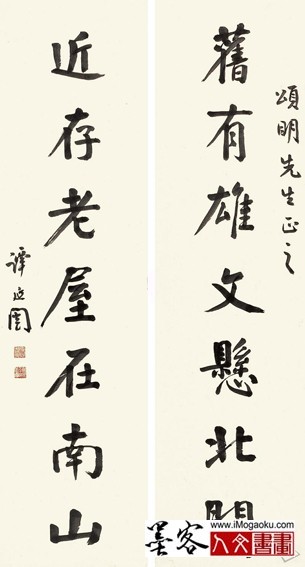 頌明先生正之
舊有雄文懸北
近存老屋在南山
譚延闓
www.iMogaoku.com
墨客 人文書畫